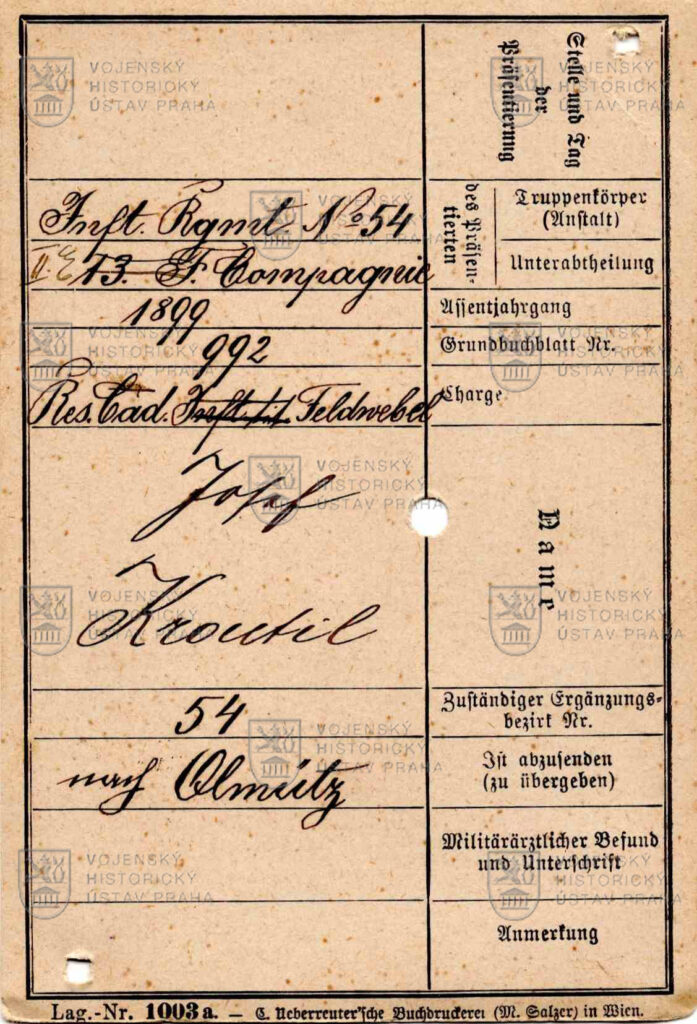 Stelle und Tag
der
Präsentierung
Inft. Rgmt. No 54
des Präsen-
tierten
Truppenkörper
(Anstalt)
13. F. Compagnie
Unterabtheilung
1899
Assentjahrgang
992
Grundbuchblatt Nr.
Res. Cad. Feldwebel
Charge
Josef
Kroutil
Name
54
Zuständiger Ergänzungs-
bezirk Nr.
nach Olmütz
Ist abzusenden
(zu übergeben)
Militärärztlicher Befund
und Unterschrift
Anmerkung
Lag.-Nr. 1003 a. — C. Ueberreuter'sche Buchdruckerei (M. Salzer) in Wien.
VOJENSKÝ
HISTORICKÝ
ÚSTAV PRAHA